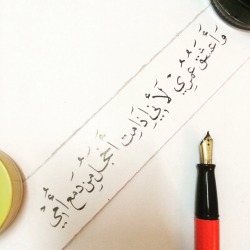 وَأَعشَقُ عُمرِي لأَنِّي إذَا مت أخجَل مِن دَمع أُمِّي